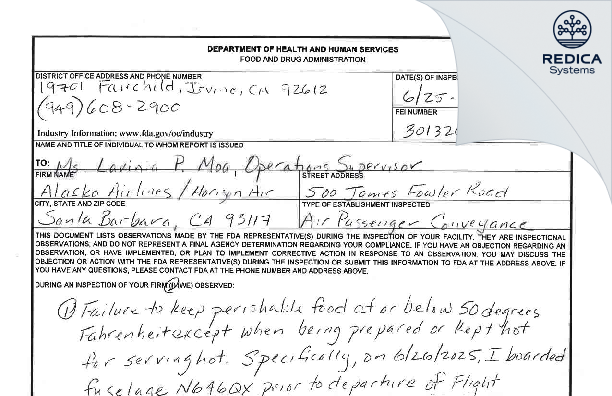 REDICA
Systems
DEPARTMENT OF HEALTH AND HUMAN SERVICES
FOOD AND DRUG ADMINISTRATION
DISTRICT OFFICE ADDRESS AND PHONE NUMBER
19701 Fairchild, Irvine, CA 92612
(949) 608-2900
Industry Information: www.fda.gov/oc/industry
DATE(S) OF INSPE
6/25-
FEI NUMBER
30132
NAME AND TITLE OF INDIVIDUAL TO WHOM REPORT IS ISSUED
TO: Ms. Lavinia P. Moa, Operations Supervisor
FIRM NAME
Alaska Airlines / Horizon Air
STREET ADDRESS
500 James Fowler Road
CITY, STATE AND ZIP CODE
Santa Barbara, CA 93117
TYPE OF ESTABLISHMENT INSPECTED
Air Passenger Conveyance
THIS DOCUMENT LISTS OBSERVATIONS MADE BY THE FDA REPRESENTATIVE(S) DURING THE INSPECTION OF YOUR FACILITY. THEY ARE INSPECTIONAL
OBSERVATIONS; AND DO NOT REPRESENT A FINAL AGENCY DETERMINATION REGARDING YOUR COMPLIANCE. IF YOU HAVE AN OBJECTION REGARDING AN
OBSERVATION, OR HAVE IMPLEMENTED, OR PLAN TO IMPLEMENT CORRECTIVE ACTION IN RESPONSE TO AN OBSERVATION, YOU MAY DISCUSS THE
OBJECTION OR ACTION WITH THE FDA REPRESENTATIVE(S) DURING THE INSPECTION OR SUBMIT THIS INFORMATION TO FDA AT THE ADDRESS ABOVE. IF
YOU HAVE ANY QUESTIONS, PLEASE CONTACT FDA AT THE PHONE NUMBER AND ADDRESS ABOVE.
DURING AN INSPECTION OF YOUR FIRM (I) (WE) OBSERVED:
① Failure to keep perishable food at or below 50 degrees
Fahrenheit except when being prepared or kept hot
for serving hot. Specifically, on 6/26/2025, I boarded
fuselage N646QX prior to departure of Flight